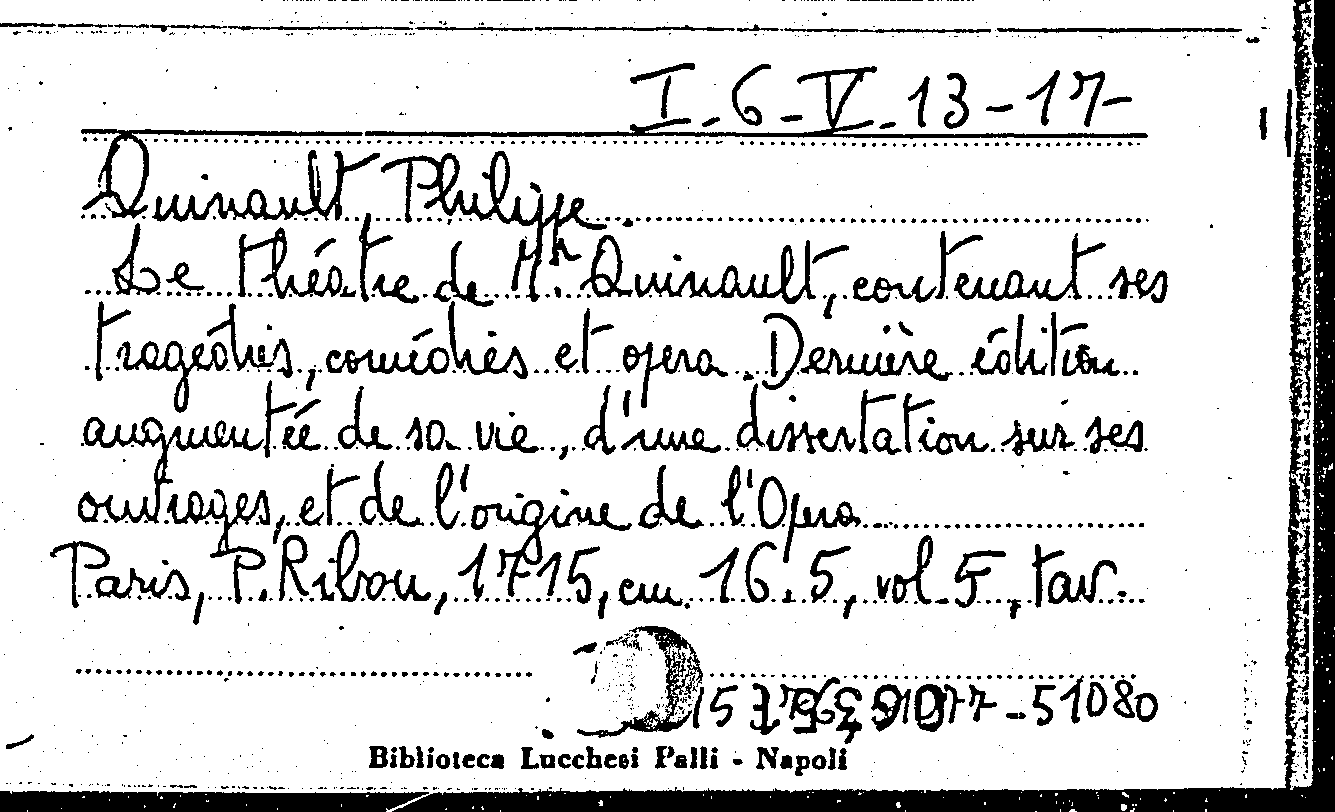 I-6-V-13-17-
Quinault, Philippe.
Le théâtre de Mr. Quinault, contenant ses
tragédies, comédies et opera. Dernière édition
augmentée de sa vie, d'une dissertation sur ses
ouvrages, et de l'origine de l'Opera
Paris, P. Ribou, 1715, cm. 16.5, vol. 5, tav.
-51080
Biblioteca Lucchesi Palli - Napoli